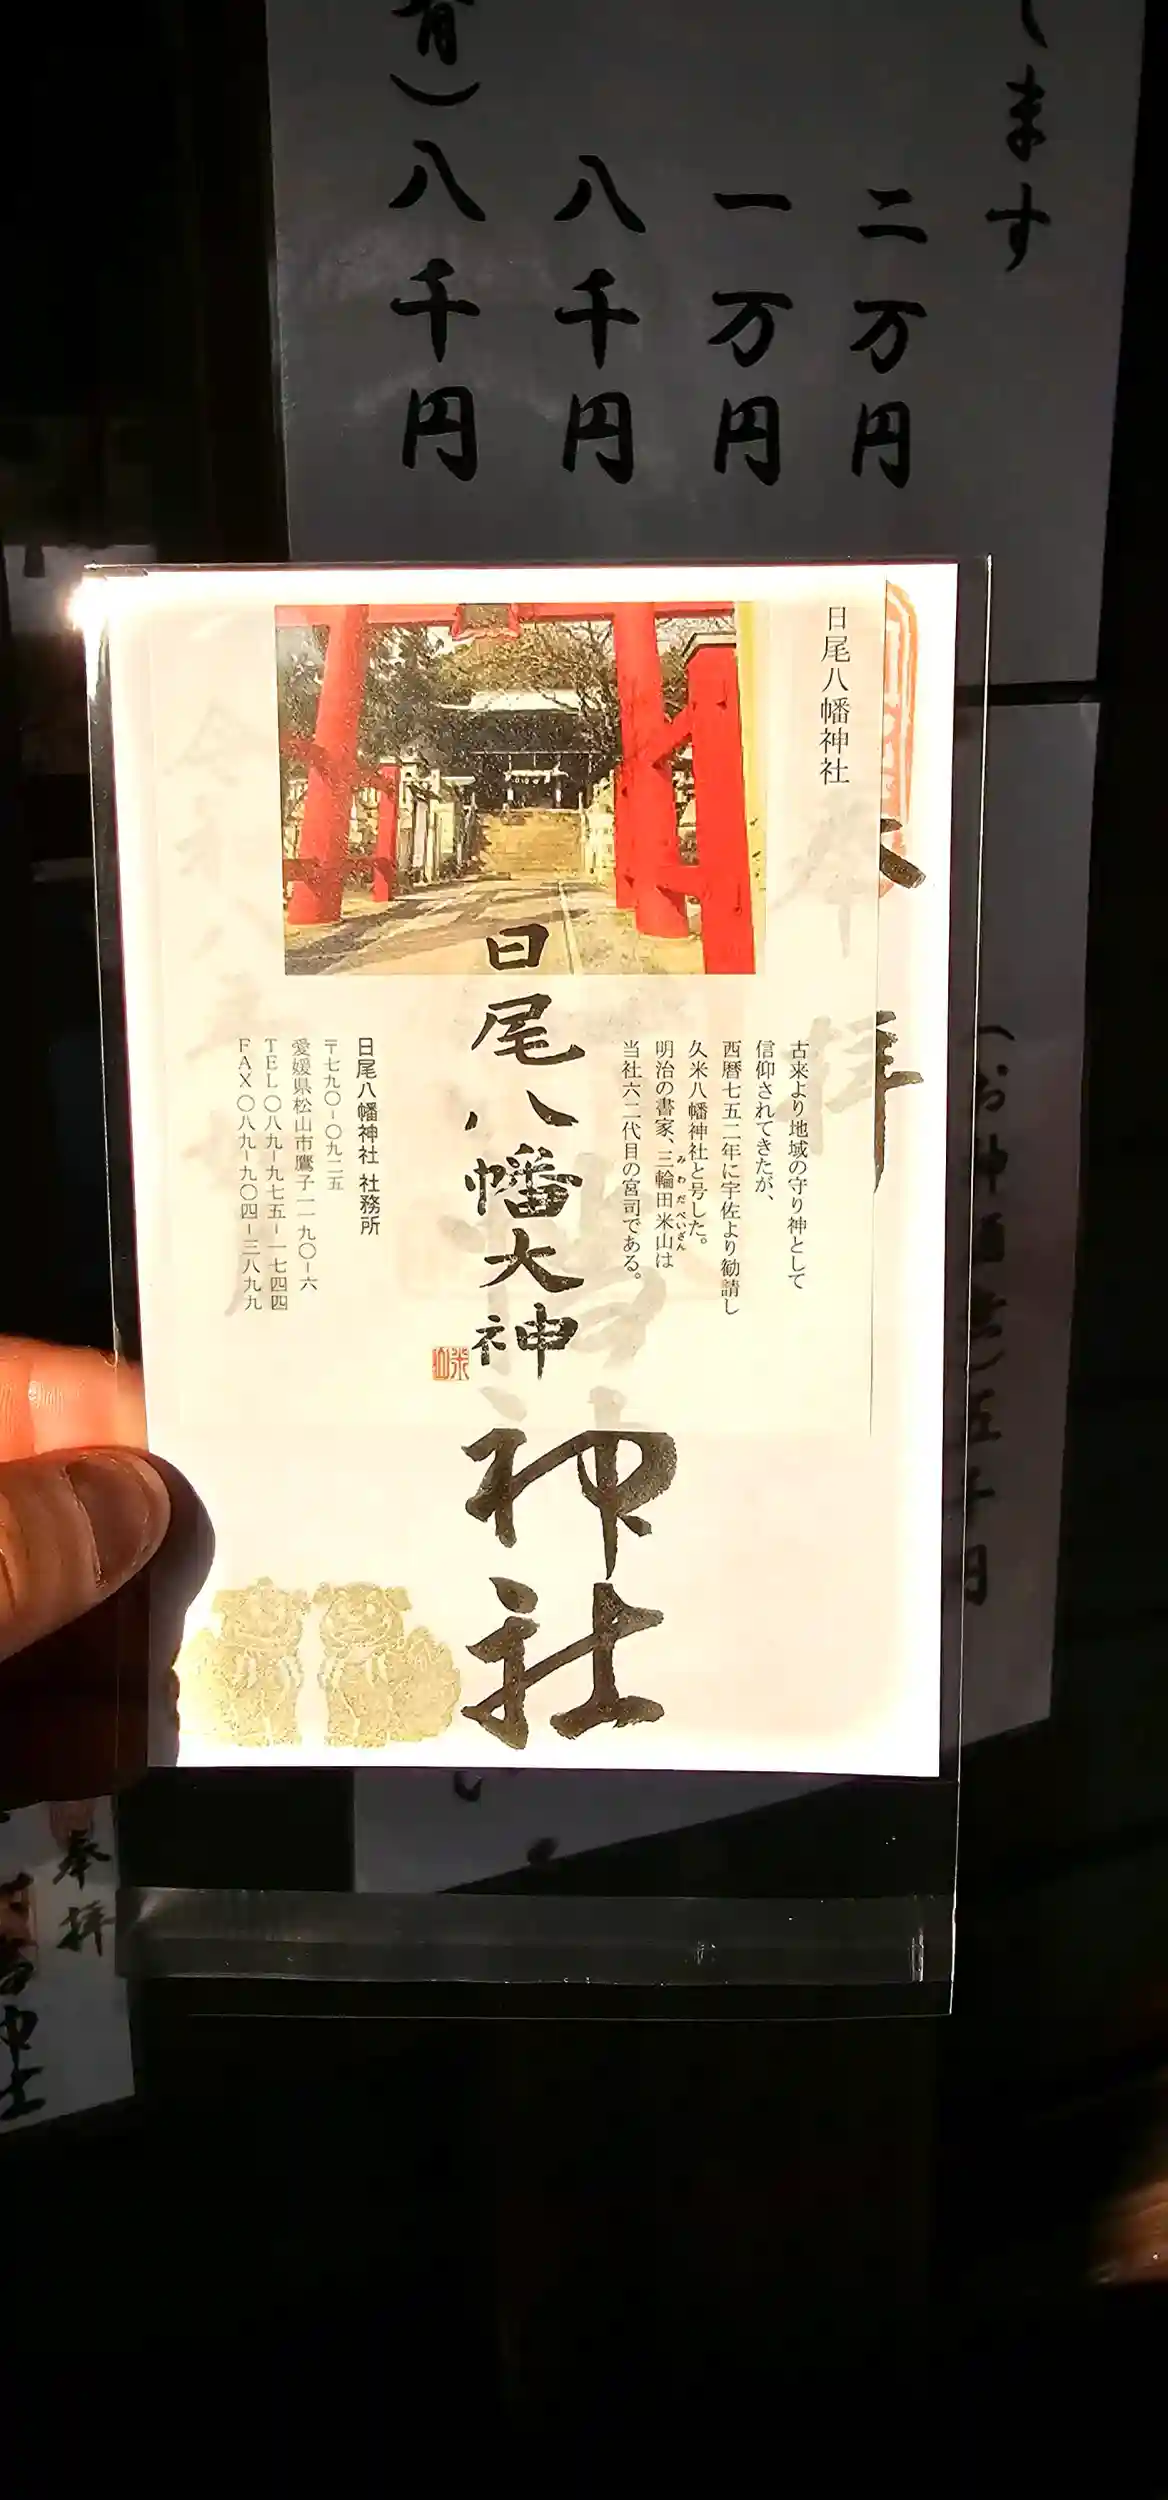 します
二万円
一万円
八千円
八千円
日尾八幡神社
古来より地域の守り神として
信仰されてきたが、
西暦七五二年に宇佐より勧請し
久米八幡神社と号した。
みわだべいざん
明治の書家、三輪田米山は
当社六二代目の宮司である。
日尾八幡大神
米山
日尾八幡神社 社務所
〒七九〇-〇九二五
愛媛県松山市鷹子一一九〇-六
TEL〇八九-九七五-一七四四
FAX〇八九-九〇四-三八九九
奉拝
神社
奉拝